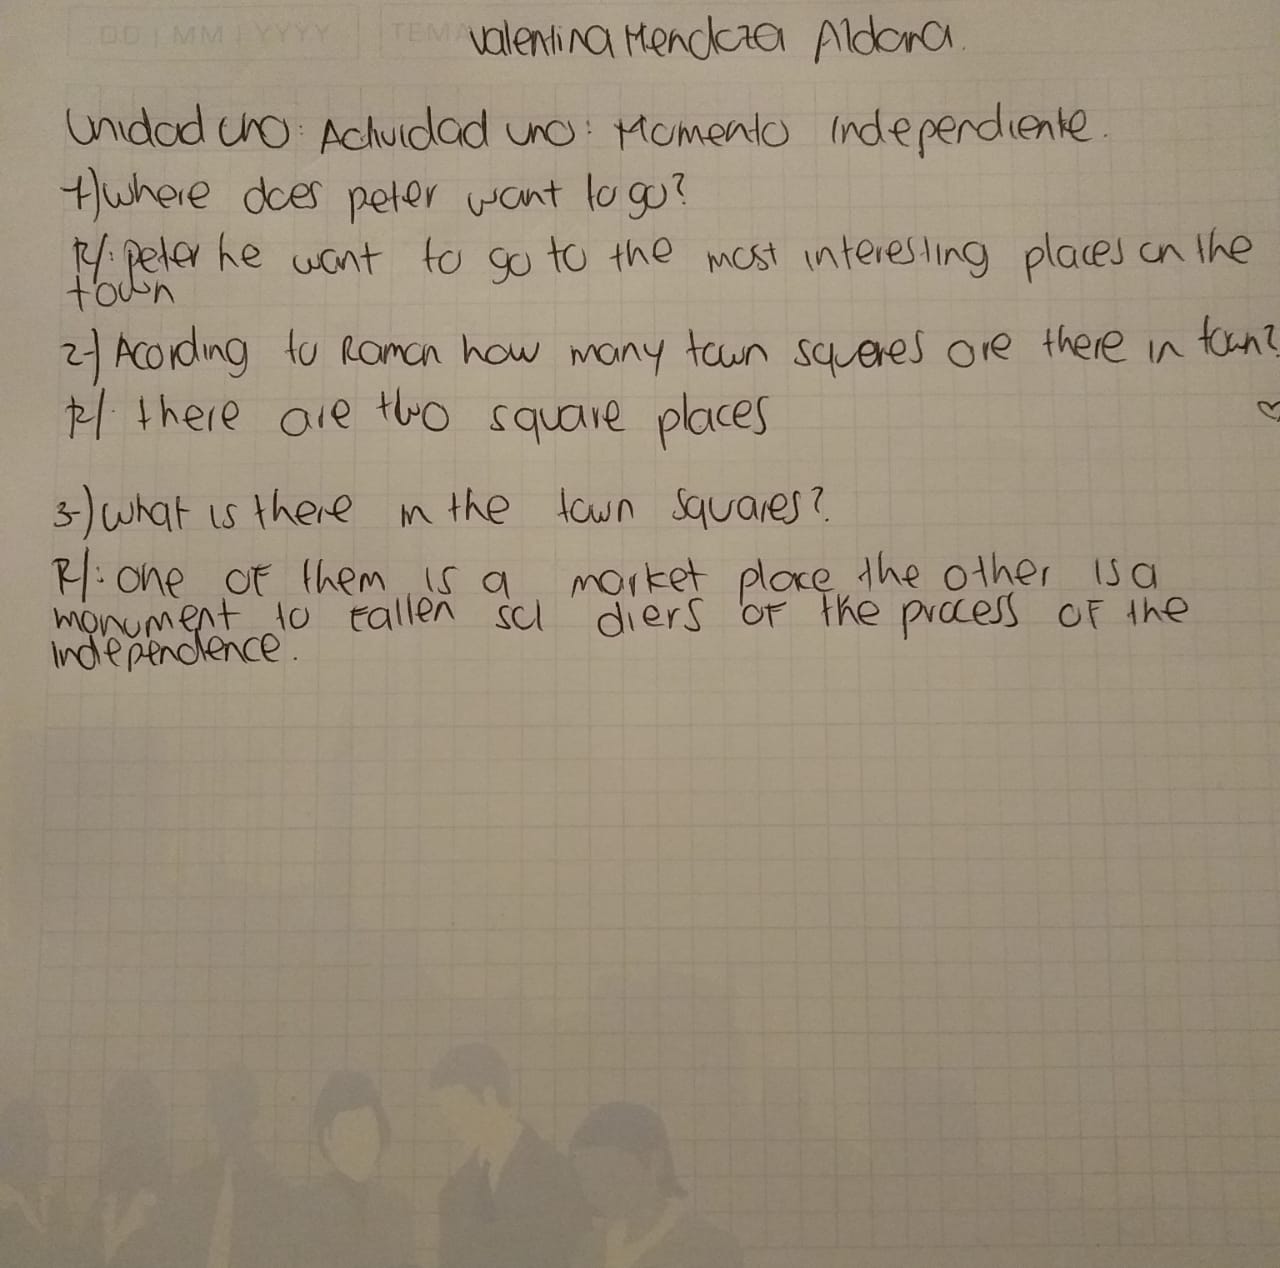 DD | MM | YYYY TEMA
Valentina Mendoza Aldana.
Unidad uno: Actividad uno: Momento Independiente.
1-) where does peter want to go?
R/: peter he want to go to the most interesting places on the
town
2-) Acording to Ramon how many town squeres are there in town?
R/: there are two square places
3-) what is there in the town squares?.
R/: one of them is a market place the other is a
monument to fallen sol diers of the process of the
independence.